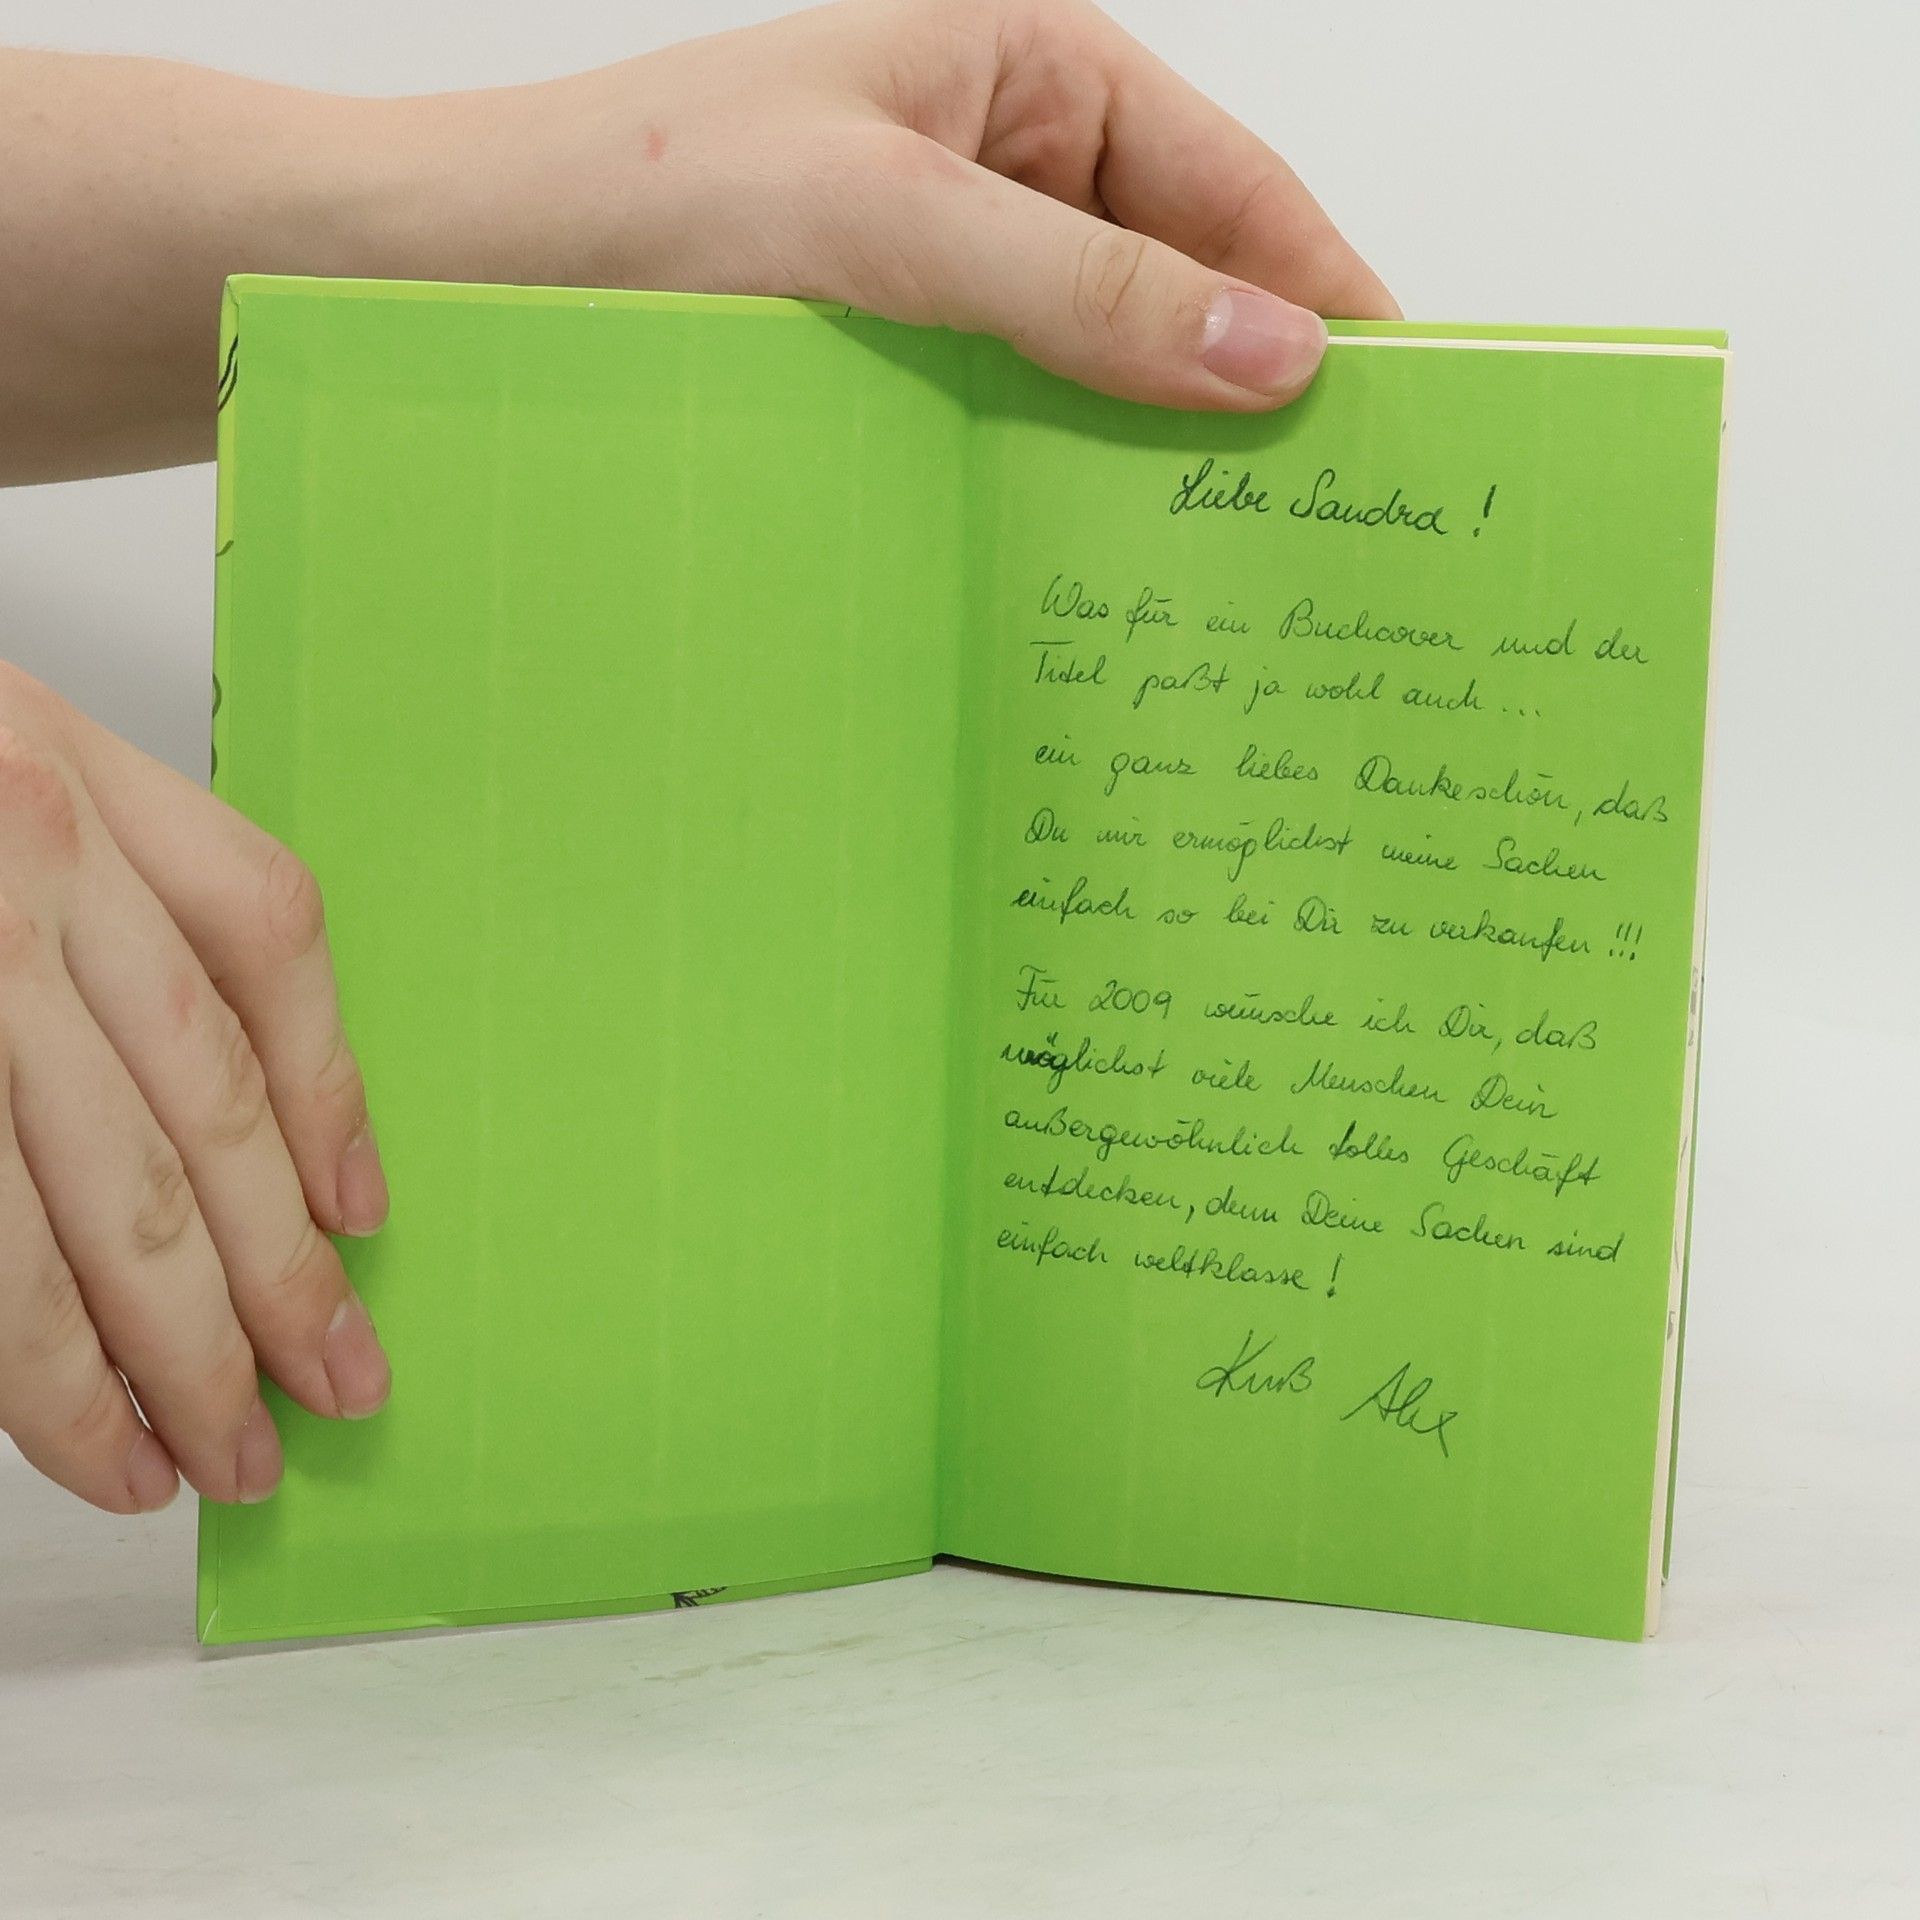 Liebe Sandra !
Was für ein Buchcover und der
Titel paßt ja wohl auch ...
ein ganz liebes Dankeschön, daß
Du mir ermöglichst meine Sachen
einfach so bei Dir zu verkaufen !!!
Für 2009 wünsche ich Dir, daß
möglichst viele Menschen Dein
außergewöhnlich tolles Geschäft
entdecken, denn Deine Sachen sind
einfach weltklasse !
Kuß Alex